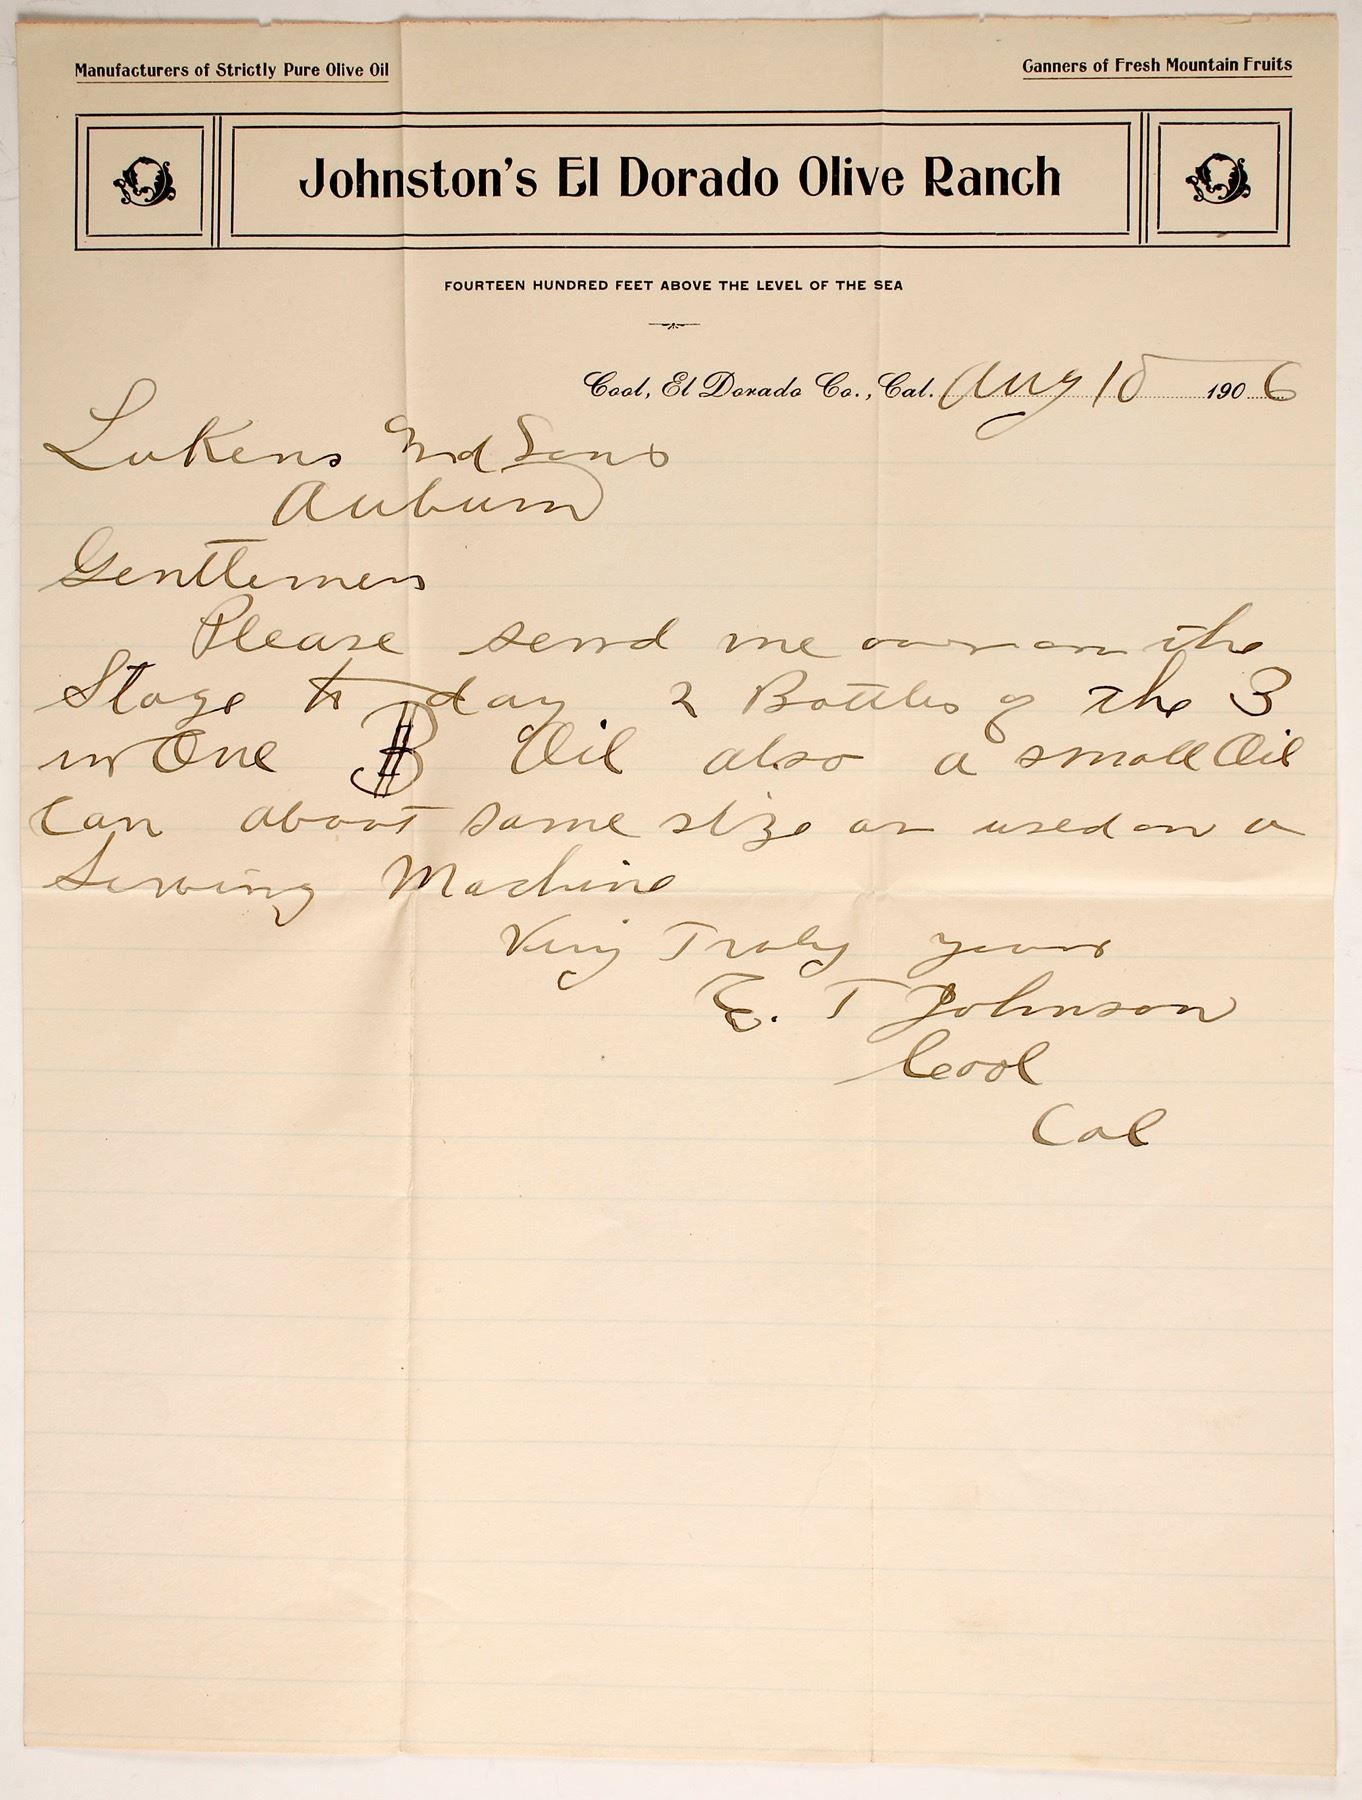 Manufacturers of Strictly Pure Olive Oil
Canners of Fresh Mountain Fruits
Johnston's El Dorado Olive Ranch
FOURTEEN HUNDRED FEET ABOVE THE LEVEL OF THE SEA
Cool, El Dorado Co., Cal. Aug 15 1906
Lukens and Sons
Auburn
Gentlemen
Please send me over on the
Stage to day 2 Bottles of the 3
in One Oil also a small Oil
Can about same size as used on a
Sewing Machine
Very Truly yours
E. T Johnson
Cool
Cal